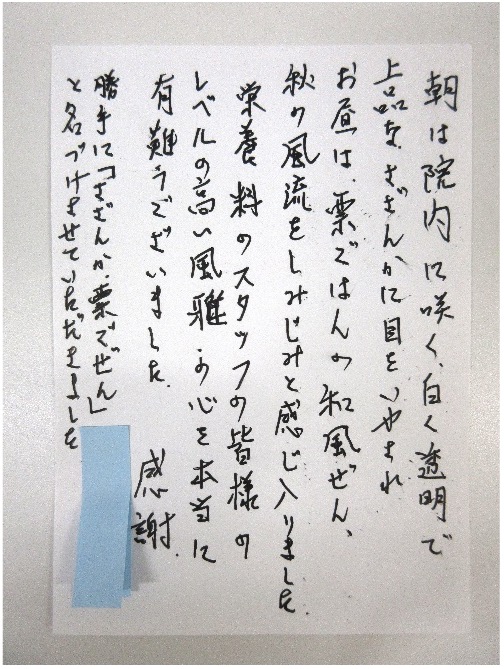 朝は院内に咲く、白く透明で
上品な、さざんかに目をいやされ
お昼は、栗ごはんの和風ぜん、
秋の風流をしみじみと感じ入りました。
栄養科のスタッフの皆様の
レベルの高い風雅の心を本当に
有難うございました。
感謝
勝手に「さざんか、栗ごぜん」
と名づけさせていただきました